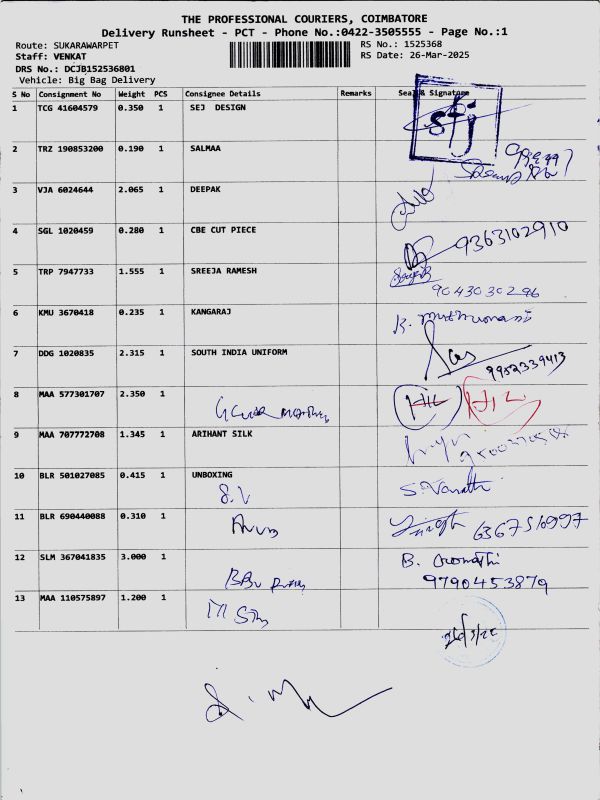 THE PROFESSIONAL COURIERS, COIMBATORE
Delivery Runsheet - PCT - Phone No.:0422-3505555 - Page No.:1
Route: SUKARAWARPET RS No.: 1525368
Staff: VENKAT RS Date: 26-Mar-2025
DRS No.: DCJB152536801
Vehicle: Big Bag Delivery
S No Consignment No Weight PCS Consignee Details Remarks Seal & Signature
1 TCG 41604579 0.350 1 SEJ DESIGN sej
2 TRZ 190853200 0.190 1 SALMAA
3 VJA 6024644 2.065 1 DEEPAK
4 SGL 1020459 0.280 1 CBE CUT PIECE 9363102910
5 TRP 7947733 1.555 1 SREEJA RAMESH
9043030296
6 KMU 3670418 0.235 1 KANGARAJ
7 DDG 1020835 2.315 1 SOUTH INDIA UNIFORM
9952339413
8 MAA 577301707 2.350 1
9 MAA 707772708 1.345 1 ARIHANT SILK
10 BLR 501027085 0.415 1 UNBOXING
S.V S.Vanathi
11 BLR 690440088 0.310 1
Arun
12 SLM 367041835 3.000 1 B.
9790453879
13 MAA 110575897 1.200 1